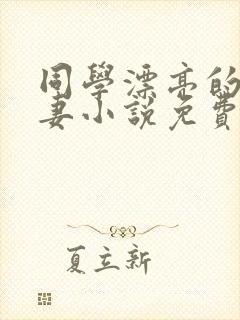 同學漂亮的
妻小說免費
夏立新